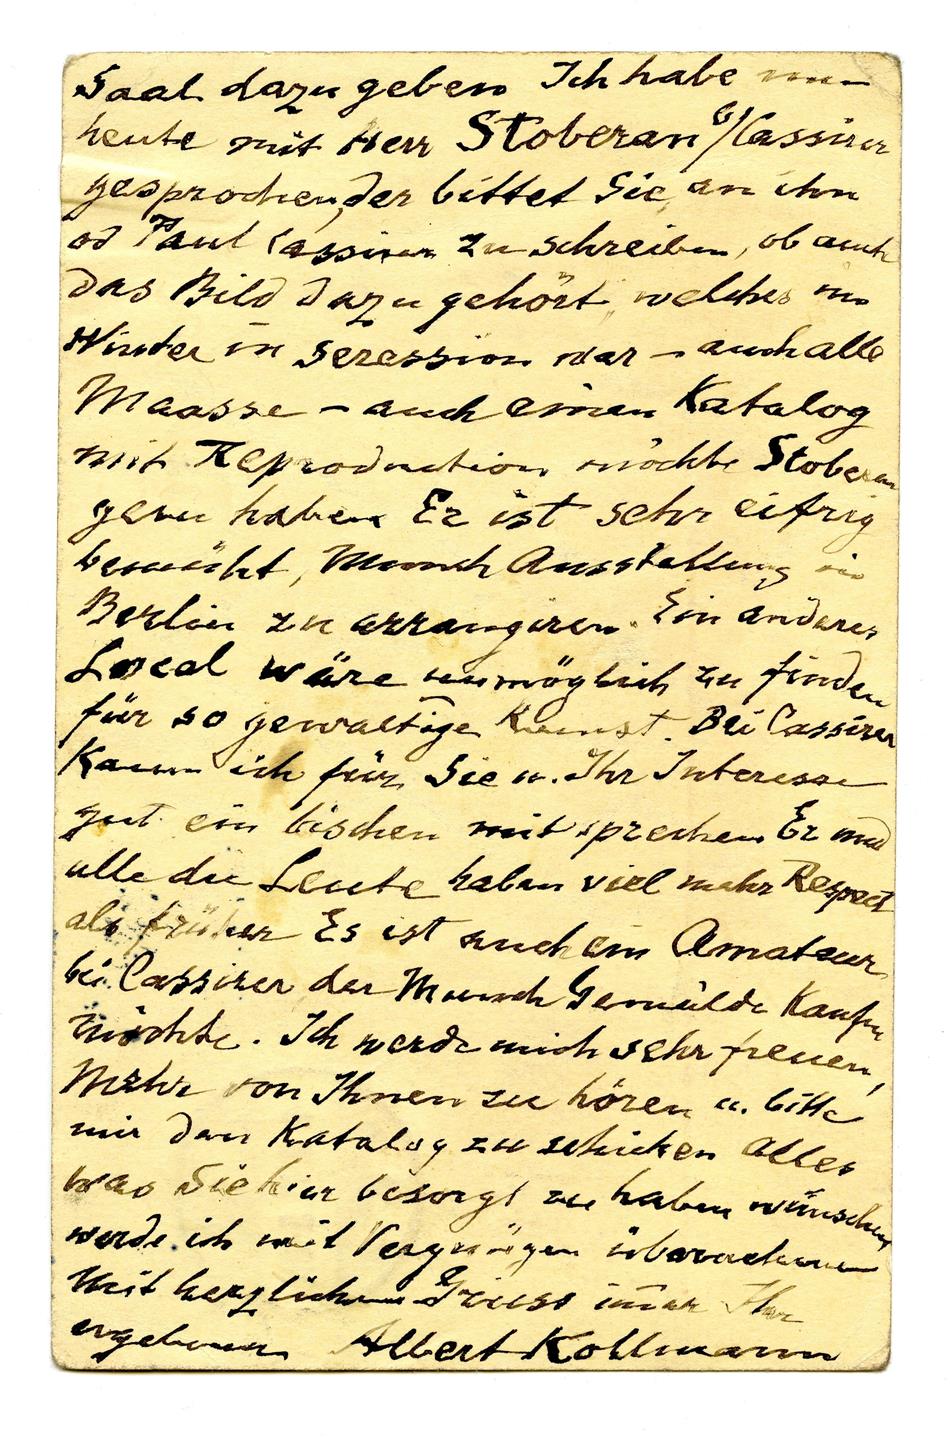 Saal dazu geben Ich habe nun
heute mit Herr Stoberan b/Cassirer
gesprochen, der bittet Sie, an ihn
od Paul Cassirer zu schreiben, ob auch
das Bild dazu gehört, welches im
Winter in Sezession war – auch alle
Maasse – auch einen Katalog
mit Reproduction möchte Stoberan
gern haben Er ist sehr eifrig
bemüht, Munch Ausstellung in
Berlin zu arrangiren. Ein anderes
Local wäre unmöglich zu finden
für so gewaltige Kunst. Bei Cassirer
Kann ich für Sie u. Ihr Interesse
gut ein bischen mitsprechen Er und
alle die Leute haben viel mehr Respect
als früher Es ist auch ein Amateur
bei Cassirer der Munch Gemälde Kaufen
möchte. Ich werde mich sehr freuen,
Mehr von Ihnen zu hören u. bitte
mir den Katalog zu schicken Alles
was Sie hier besorgt zu haben wünschen
werde ich mit Vergnügen übernehmen
Mit herzlichem Gruss im̅er Ihr
ergebener Albert Kollmann